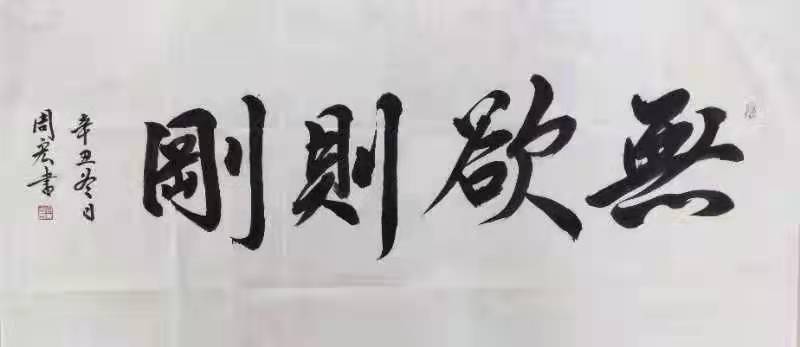 無欲則剛
辛丑冬月
周宏書